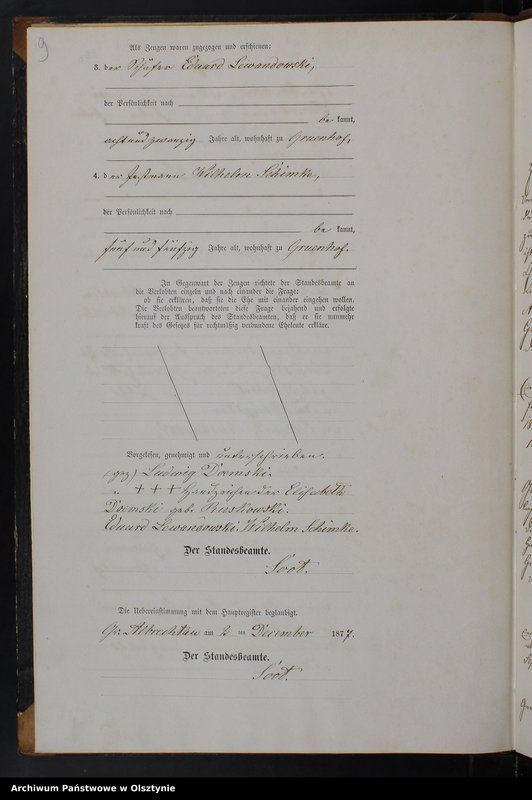 9
Als Zeugen waren zugezogen und erschienen:
3. der Schäfer Eduard Lewandowski,
der Persönlichkeit nach
be kannt,
acht und zwanzig Jahre alt, wohnhaft zu Gruenhof,
4. der Instmann Wilhelm Schimke,
der Persönlichkeit nach
be kannt,
fünf und fünfzig Jahre alt, wohnhaft zu Gruenhof.
In Gegenwart der Zeugen richtete der Standesbeamte an
die Verlobten einzeln und nach einander die Frage:
ob sie erklären, daß sie die Ehe mit einander eingehen wollen.
Die Verlobten beantworteten diese Frage bejahend und erfolgte
hierauf der Ausspruch des Standesbeamten, daß er sie nunmehr
kraft des Gesetzes für rechtmäßig verbundene Eheleute erkläre.
Vorgelesen, genehmigt und unterschrieben.
(gez) Ludwig Doemski.
„ +++ Handzeichen der Elisabeth
Doemski geb. Ruskowski.
Eduard Lewandowski. Wilhelm Schimke.
Der Standesbeamte.
Soot.
Die Uebereinstimmung mit dem Hauptregister beglaubigt.
Gr. Albrechtau am 2 ten December 1877.
Der Standesbeamte.
Soot.
Archiwum Państwowe w Olsztynie